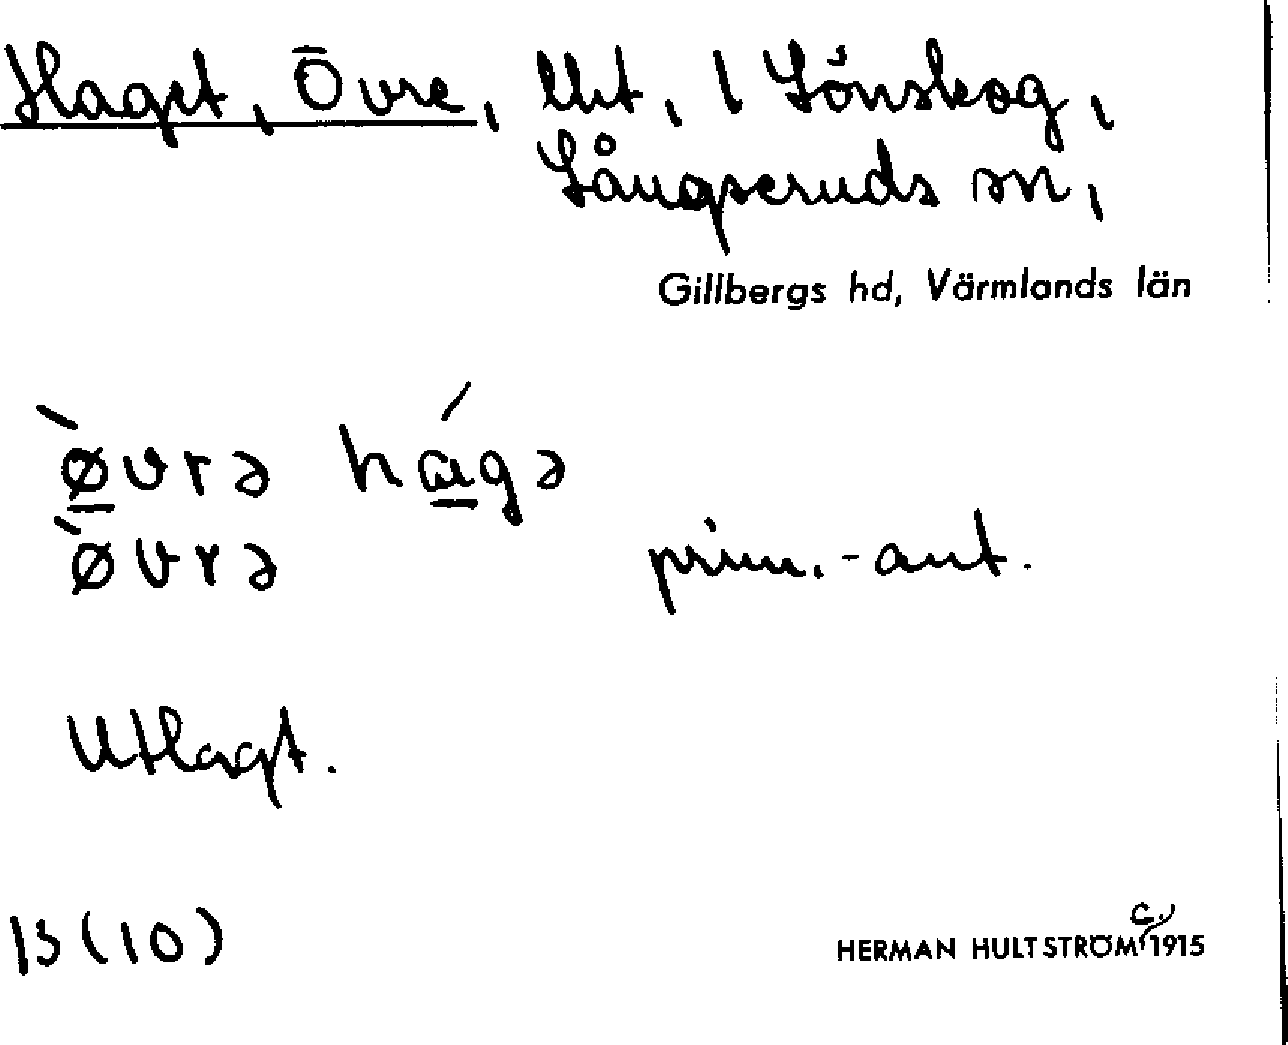 Haget, Övre, lht, i Lönskog,
Långseruds sn,
Gillbergs hd, Värmlands län
ø̀vrə hágə
ø̀vrə prim.-ant.
Utlagt.
13(10)
HERMAN HULTSTRÖM c. 1915